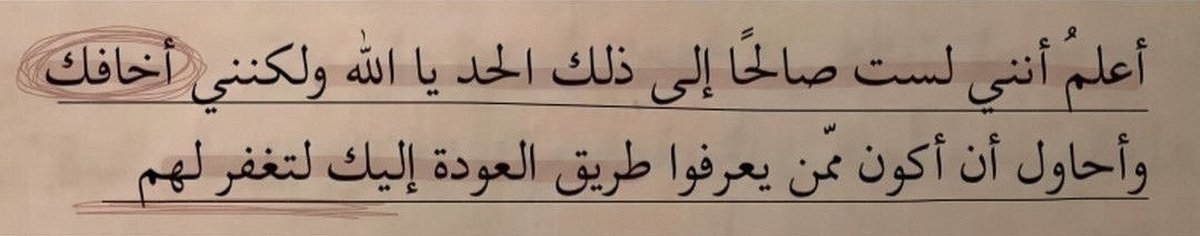 أعلمُ أنني لست صالحًا إلى ذلك الحد يا الله ولكنني أخافك
وأحاول أن أكون ممّن يعرفوا طريق العودة إليك لتغفر لهم